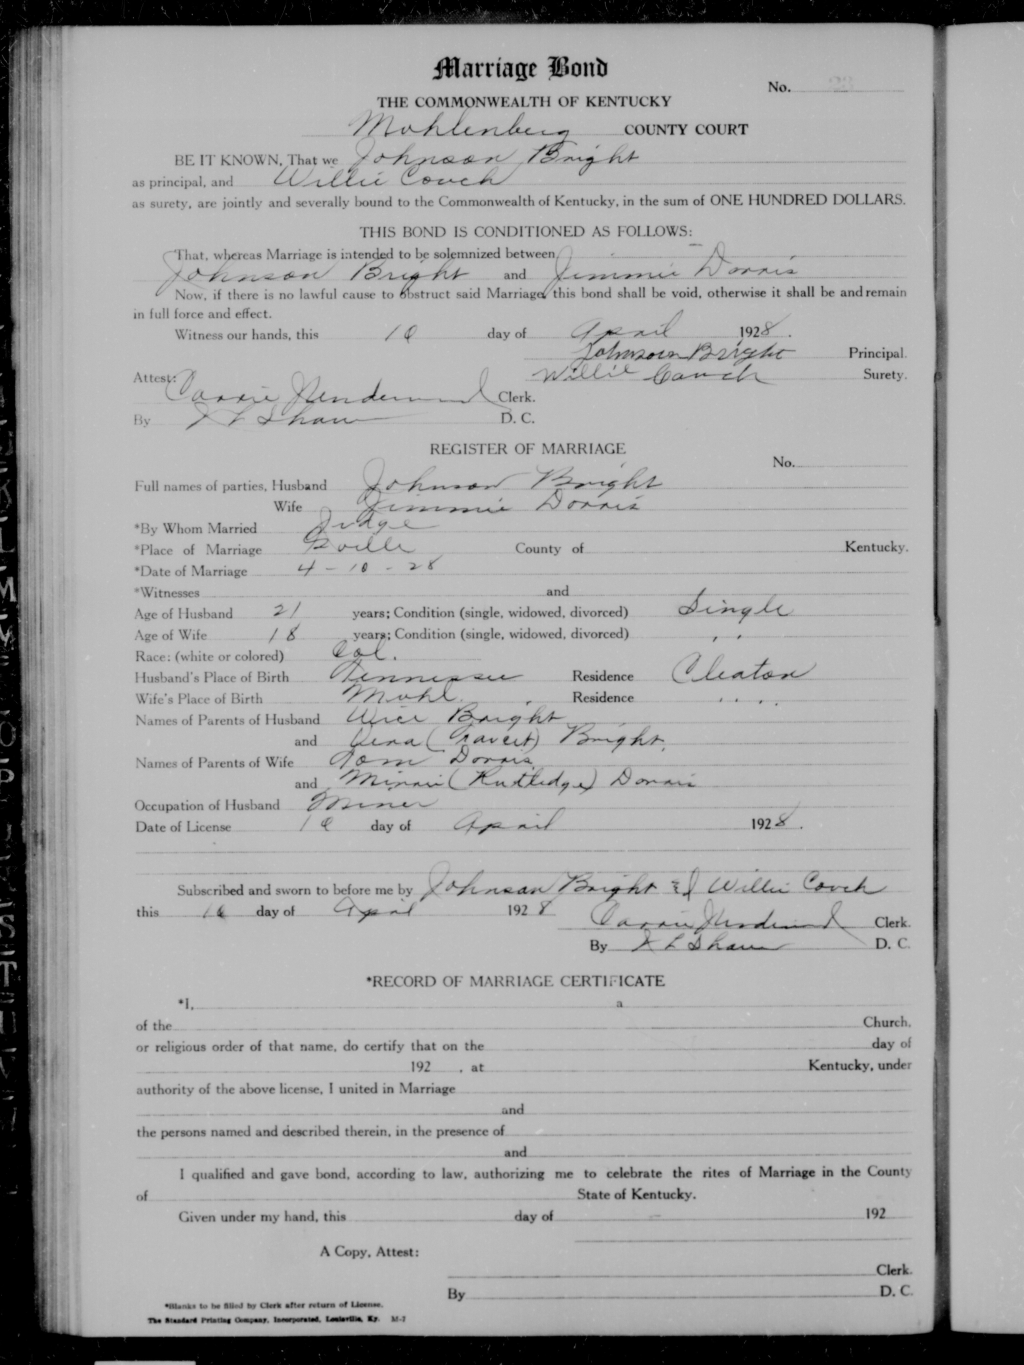 Marriage Bond
No.
THE COMMONWEALTH OF KENTUCKY
Muhlenberg COUNTY COURT
BE IT KNOWN, That we Johnson Bright
as principal, and Willie Couch
as surety, are jointly and severally bound to the Commonwealth of Kentucky, in the sum of ONE HUNDRED DOLLARS.
THIS BOND IS CONDITIONED AS FOLLOWS:
That, whereas Marriage is intended to be solemnized between
Johnson Bright and Jimmie Dorris
Now, if there is no lawful cause to obstruct said Marriage, this bond shall be void, otherwise it shall be and remain
in full force and effect.
Witness our hands, this 10 day of April 1928.
Johnson Bright Principal.
Willie Couch Surety.
Attest: Carrie Clerk.
By Shaw D. C.
REGISTER OF MARRIAGE
No.
Full names of parties, Husband Johnson Bright
Wife Jimmie Dorris
*By Whom Married Judge
*Place of Marriage Gville County of Kentucky.
*Date of Marriage 4-10-28
*Witnesses and
Age of Husband 21 years; Condition (single, widowed, divorced) Single
Age of Wife 18 years; Condition (single, widowed, divorced) " "
Race: (white or colored) Col.
Husband's Place of Birth Tennessee Residence Cleaton
Wife's Place of Birth Muhl. Residence " "
Names of Parents of Husband Bright
and Bright
Names of Parents of Wife Tom Dorris
and Minnie (Rutledge) Dorris
Occupation of Husband Miner
Date of License 10 day of April 1928.
Subscribed and sworn to before me by Johnson Bright & Willie Couch
this 10 day of April 1928
Carrie Clerk.
By Shaw D. C.
*RECORD OF MARRIAGE CERTIFICATE
*I, a
of the Church,
or religious order of that name, do certify that on the day of
192 , at Kentucky, under
authority of the above license, I united in Marriage
and
the persons named and described therein, in the presence of
and
I qualified and gave bond, according to law, authorizing me to celebrate the rites of Marriage in the County
of State of Kentucky.
Given under my hand, this day of 192
A Copy, Attest:
Clerk.
By D. C.
*Blanks to be filled by Clerk after return of License.
The Standard Printing Company, Incorporated, Louisville, Ky. M-7